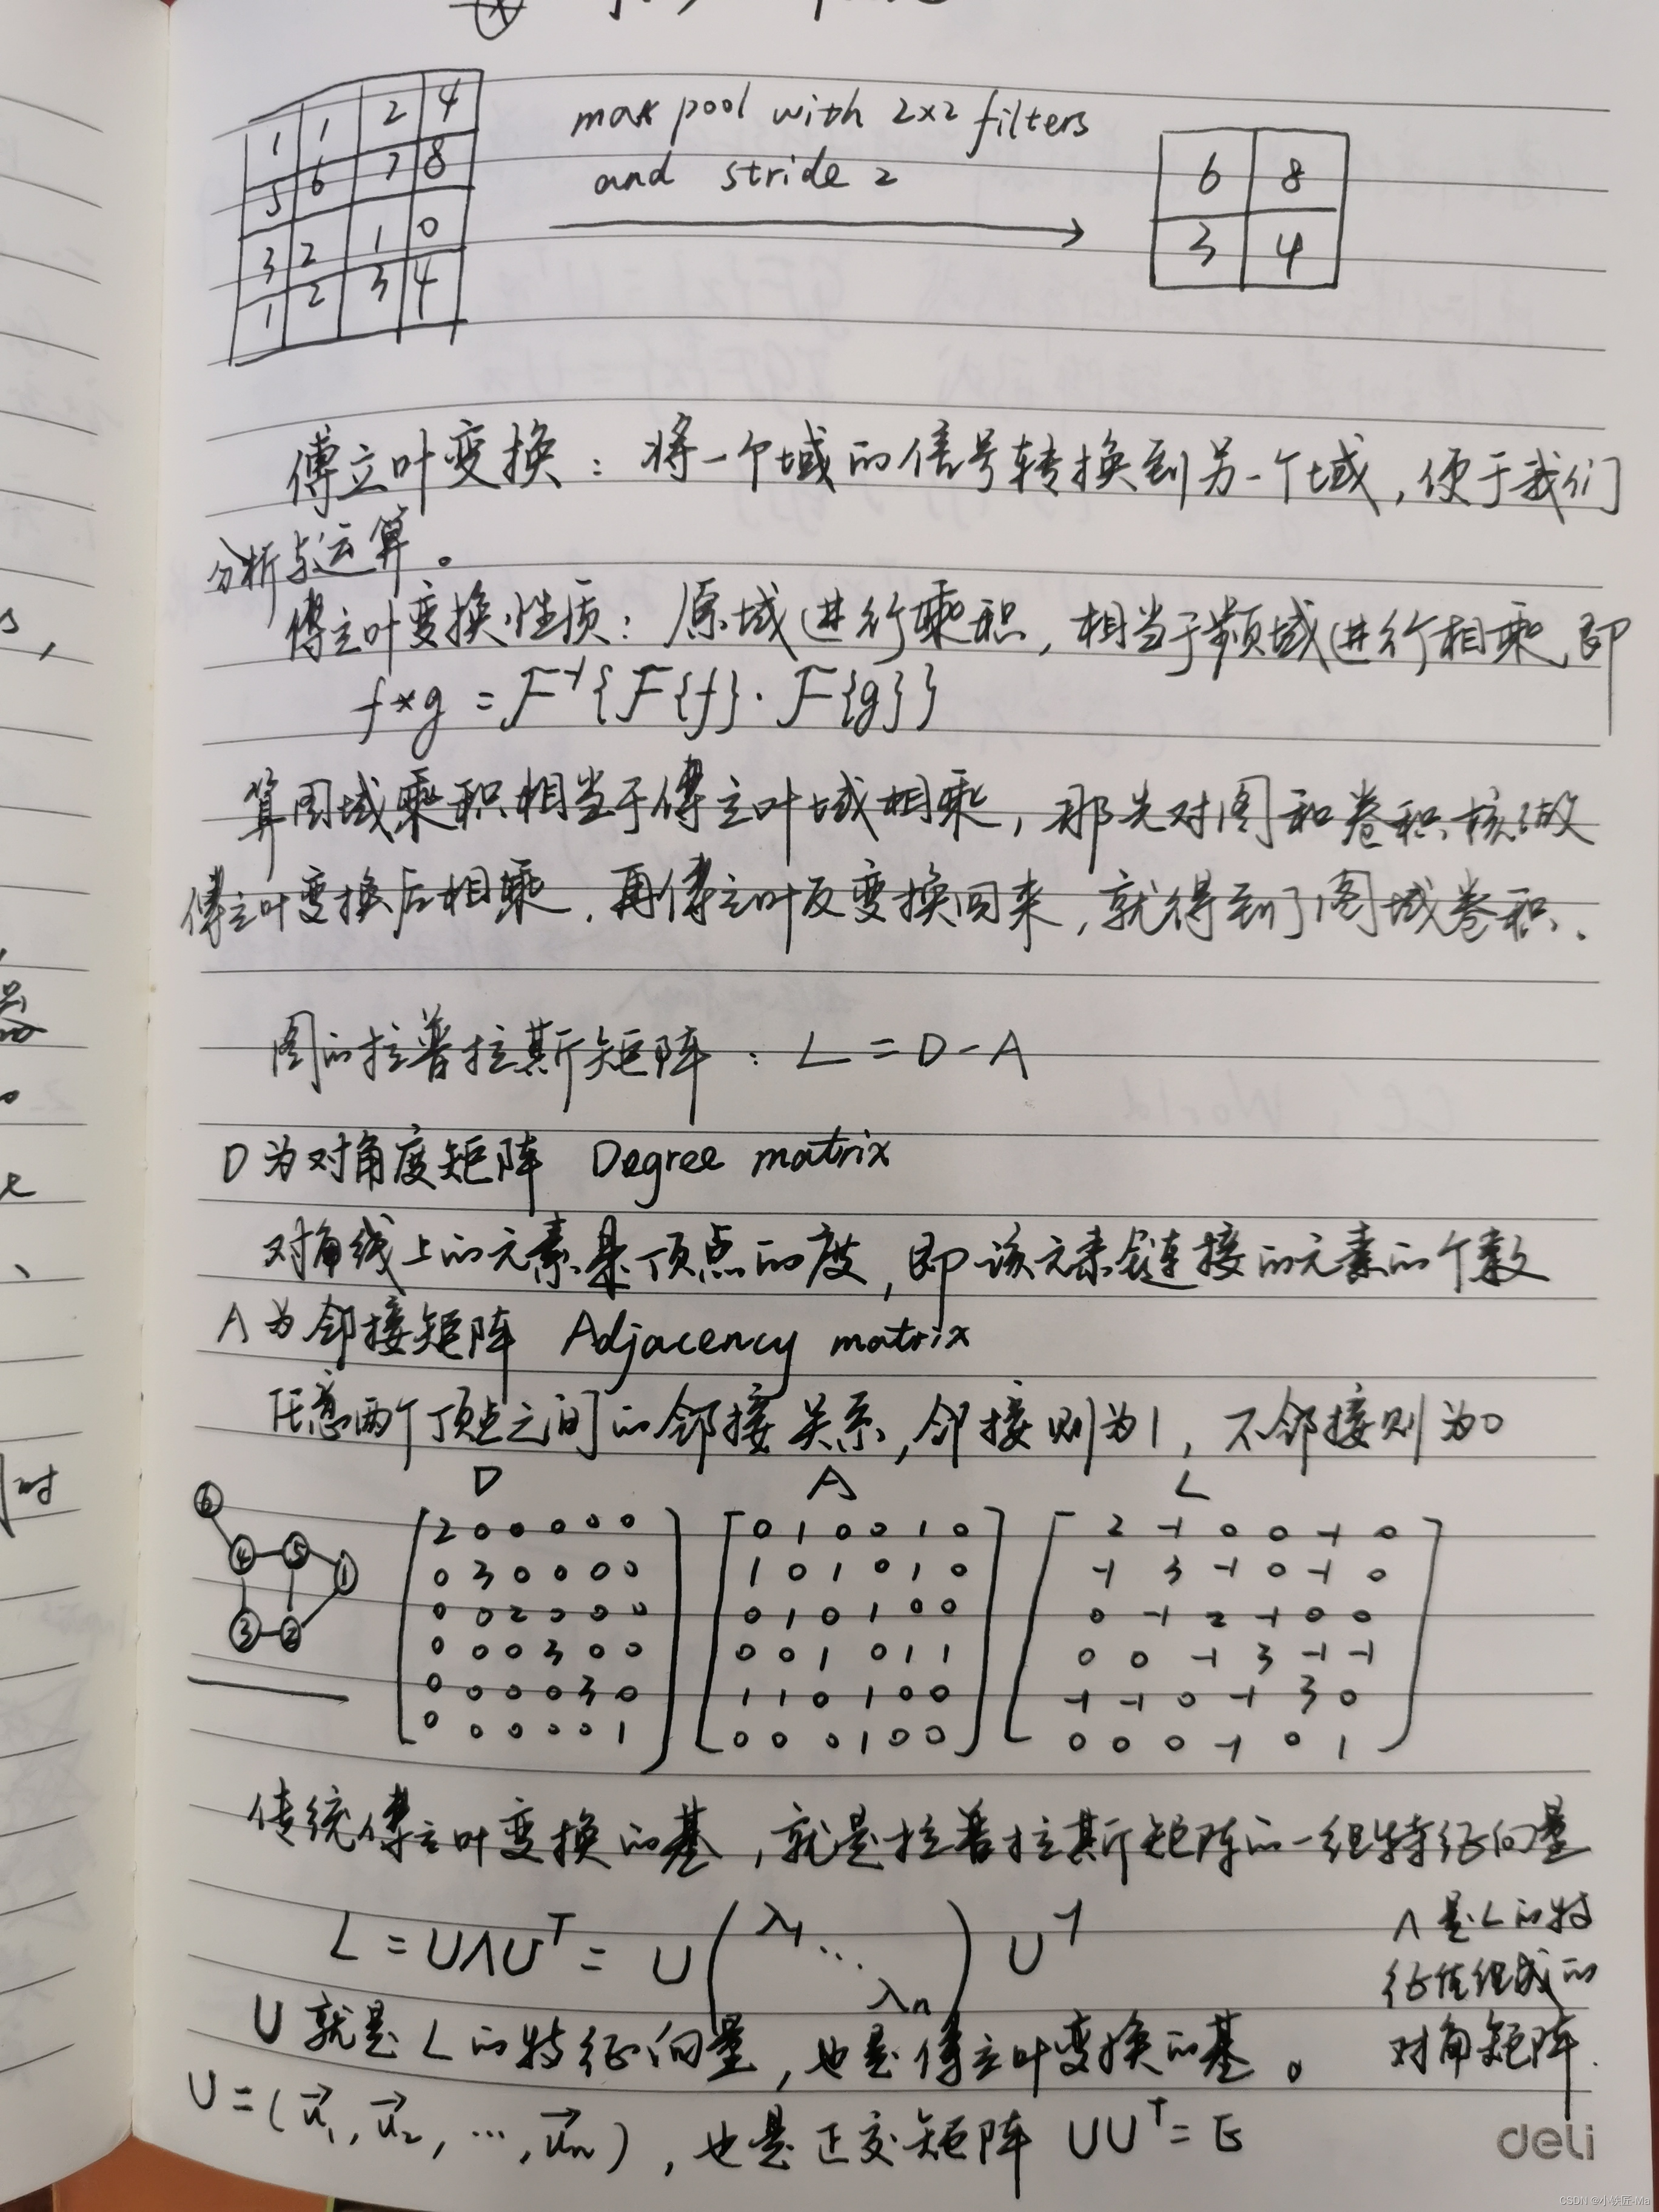 1 1 2 4
5 6 7 8
3 2 1 0
1 2 3 4
max pool with 2×2 filters
and stride 2
6 8
3 4
傅立叶变换：将一个域的信号转换到另一个域，便于我们
分析与运算。
傅立叶变换性质：原域进行乘积，相当于频域进行相乘，即
f*g = F⁻¹{F{f}·F{g}}
算图域乘积相当于傅立叶域相乘，那先对图和卷积核做
傅立叶变换后相乘，再傅立叶反变换回来，就得到了图域卷积.
图的拉普拉斯矩阵：L = D-A
D为对角度矩阵 Degree matrix
对角线上的元素是顶点的度，即该元素链连接的元素的个数
A为邻接矩阵 Adjacency matrix
任意两个顶点之间的邻接关系，邻接则为1，不邻接则为0
D A L
6
4 5 1
3 2
2 0 0 0 0 0 0 1 0 0 1 0 2 -1 0 0 -1 0
0 3 0 0 0 0 1 0 1 0 1 0 -1 3 -1 0 -1 0
0 0 2 0 0 0 0 1 0 1 0 0 0 -1 2 -1 0 0
0 0 0 3 0 0 0 0 1 0 1 1 0 0 -1 3 -1 -1
0 0 0 0 3 0 1 1 0 1 0 0 -1 -1 0 -1 3 0
0 0 0 0 0 1 0 0 0 1 0 0 0 0 0 -1 0 1
传统傅立叶变换的基，就是拉普拉斯矩阵的一组特征向量
L = UΛUᵀ = U(λ₁ ⋱ λₙ)U⁻¹
Λ是L的特
征值组成的
对角矩阵.
U就是L的特征向量，也是傅立叶变换的基。
U=(u⃗₁, u⃗₂, …, u⃗ₙ)，也是正交矩阵 UUᵀ=E
deli
CSDN @小妖匠-Ma
对